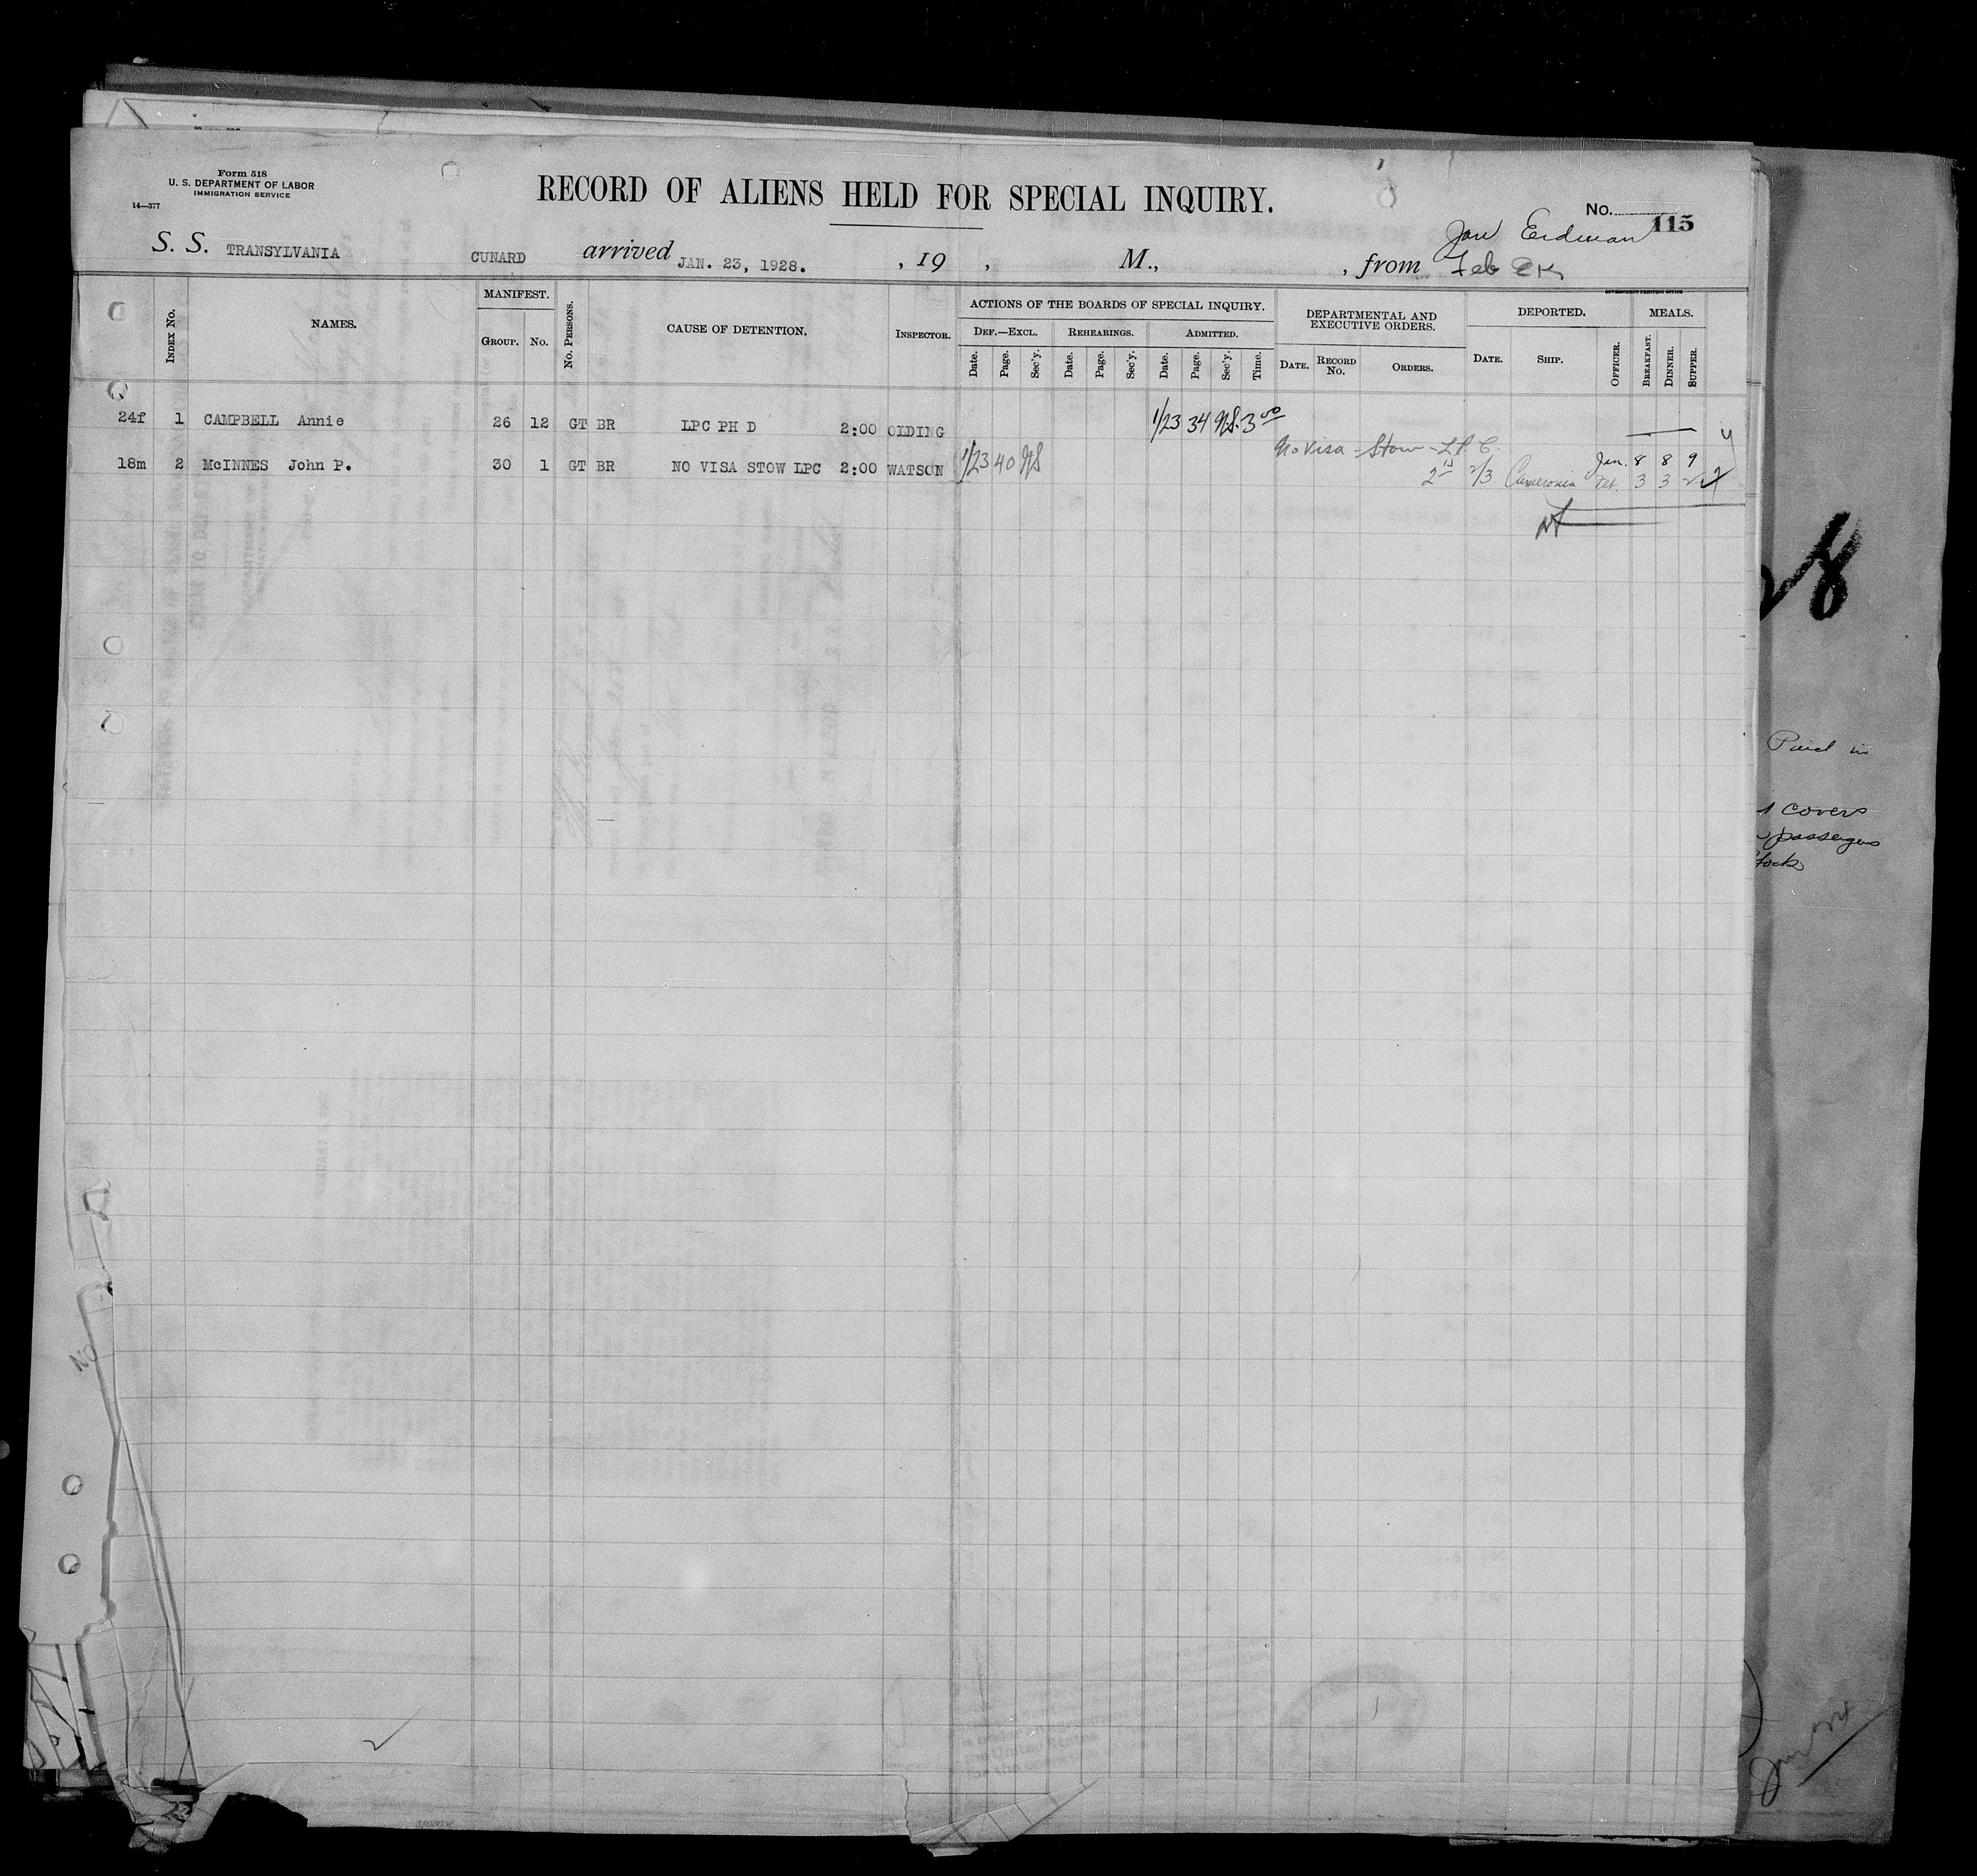 Form 518
U. S. DEPARTMENT OF LABOR
IMMIGRATION SERVICE
14—377
RECORD OF ALIENS HELD FOR SPECIAL INQUIRY.
No. 115
Jan Erdman
S. S. TRANSYLVANIA CUNARD arrived JAN. 23, 1928. , 19 , M., , from Feb
INDEX No. NAMES. MANIFEST. GROUP. No. No. PERSONS. CAUSE OF DETENTION. INSPECTOR. ACTIONS OF THE BOARDS OF SPECIAL INQUIRY. DEF.—EXCL. Date. Page. Sec'y. REHEARINGS. Date. Page. Sec'y. ADMITTED. Date. Page. Sec'y. Time. DEPARTMENTAL AND EXECUTIVE ORDERS. DATE. RECORD No. ORDERS. DEPORTED. DATE. SHIP. OFFICER. MEALS. BREAKFAST. DINNER. SUPPER.
24f 1 CAMPBELL Annie 26 12 GT BR LPC PH D 2:00 OLDING 1/23 34 NS. 3 00
No Visa - Stow - L.P.C.
18m 2 McINNES John P. 30 1 GT BR NO VISA STOW LPC 2:00 WATSON 1/23 40 NS Jan. 8 8 9
2/3 Cameronia Feb. 3 3 2
28
Paid in
covers
passengers
NO